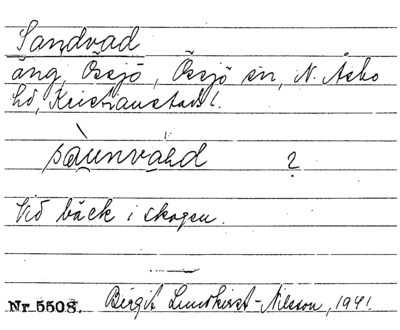 Sandvad
äng, Össjö, Össjö sn, N. Åsbo
hd, Kristianstads l.
sàunvàd ?
Vid bäck i skogen.
Nr 5508. Birgit Lundkvist-Nilsson, 1941.